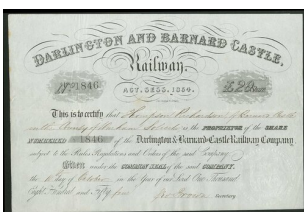 DARLINGTON AND BARNARD CASTLE,
Railway.
No 1846
ACT, SESS. 1854.
This is to certify that Thompson Richardson of
County of Durham is the PROPRIETOR of the SHARE
NUMBERED 1846 of the Darlington & Barnard Castle Railway Company
subject to the Rules Regulations and Orders of the said Company
Given under the COMMON SEAL of the said COMPANY.
the day of October in the Year of our Lord One Thousand
Eight Hundred and Fifty four
Secretary